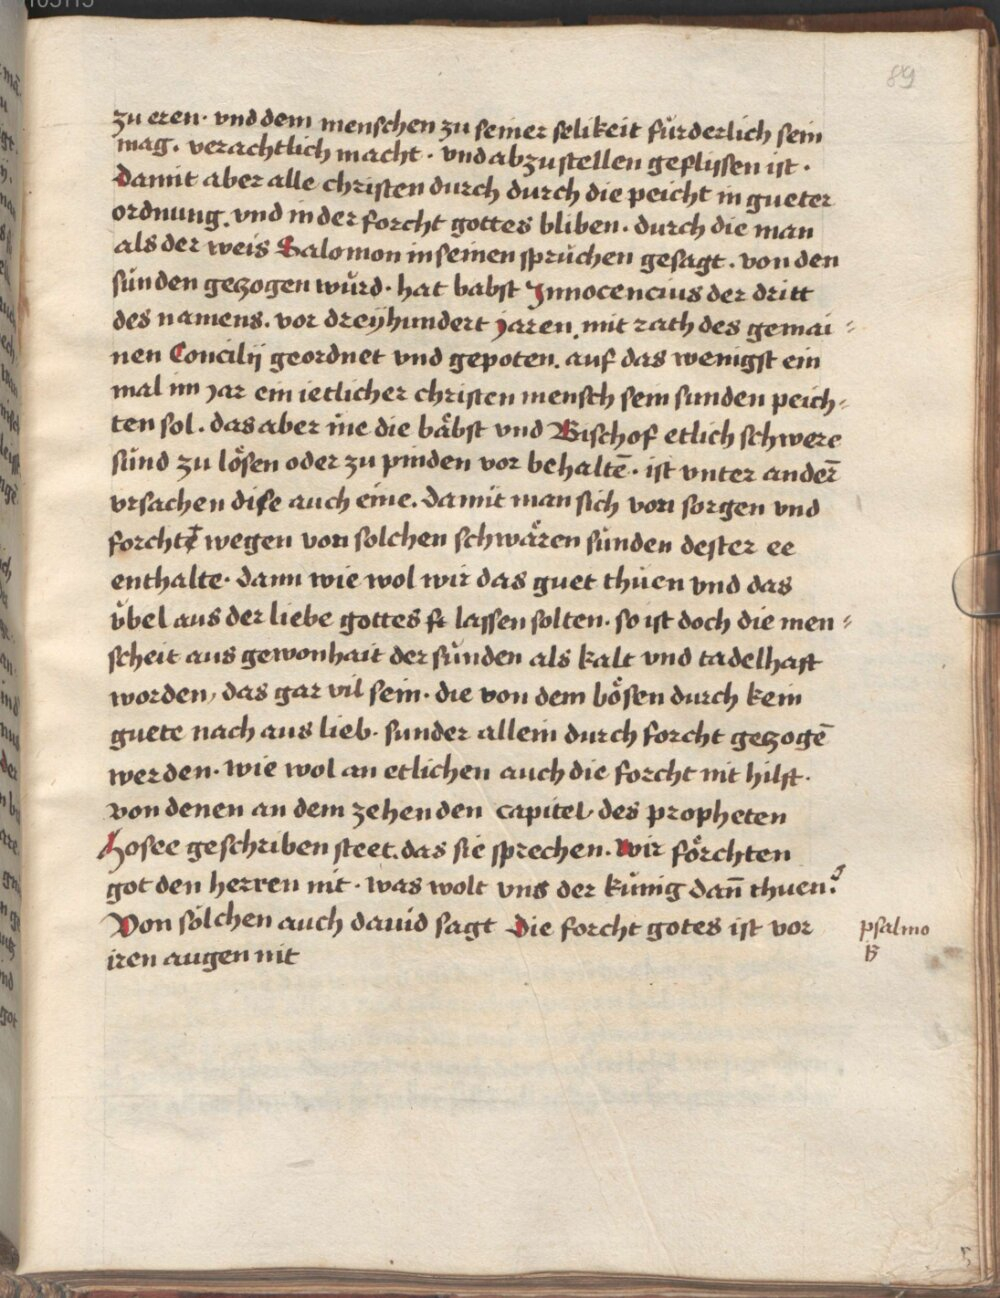 89
zu eren· vnd dem menschen zu seiner selikeit fürderlich sein
mag· verachtlich macht· vnd abzustellen geflissen ist·
Damit aber alle christen durch durch die peicht in gueter
ordnung· vnd in der forcht gottes bliben· durch die man
als der weis Salomon in seinen sprüchen gesagt· von den
sünden gezogen würd· hat babst Innocencius der dritt
des namens· vor dreÿhundert jaren· mit rath des gemai⸗
nen Concilij geordnet vnd gepoten· auf das wenigst ein
mal im jar ein ietlicher christen mensch sein sunden peich⸗
ten sol· das aber nie die bäbst vnd Bischof etlich schwere
sünd zu lösen oder zu pinden vor behaltē· ist vnter anderē
vrsachen dise auch eine· Damit man sich von sorgen vnd
forcht wegen von solchen schwären sünden dester ee
enthalte· dann wie wol wir das guet thüen vnd das
übel aus der liebe gottes lassen solten· so ist doch die men⸗
scheit aus gewonhait der sünden als kalt vnd tadelhaft
worden, das gar vil sein· die von dem bösen durch kein
guete nach aus lieb· sunder allein durch forcht gezogē
werden· wie wol an etlichen auch die forcht nit hilft·
von denen an dem zehenden capitel des propheten
Hosee geschriben steet· das sie sprechen· Wir förchten
got den herren nit· was wolt vns der künig dañ thuen?
Von sölchen auch dauid sagt Die forcht gotes ist vor
iren augen nit
psalmo
13
5